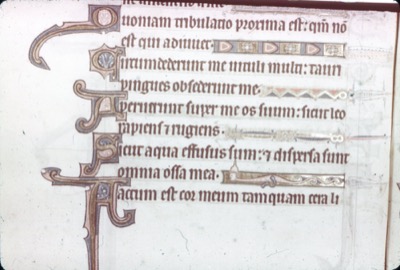 Quoniam tribulatio proxima est: qm̄ nō
est qui adiuuet.
Circumdederunt me uituli multi: tauri
pingues obsederunt me.
Aperuerunt super me os suum: sicut leo
rapiens ⁊ rugiens.
Sicut aqua effusus sum: ⁊ dispersa sunt
omnia ossa mea.
Factum est cor meum tamquam cera li